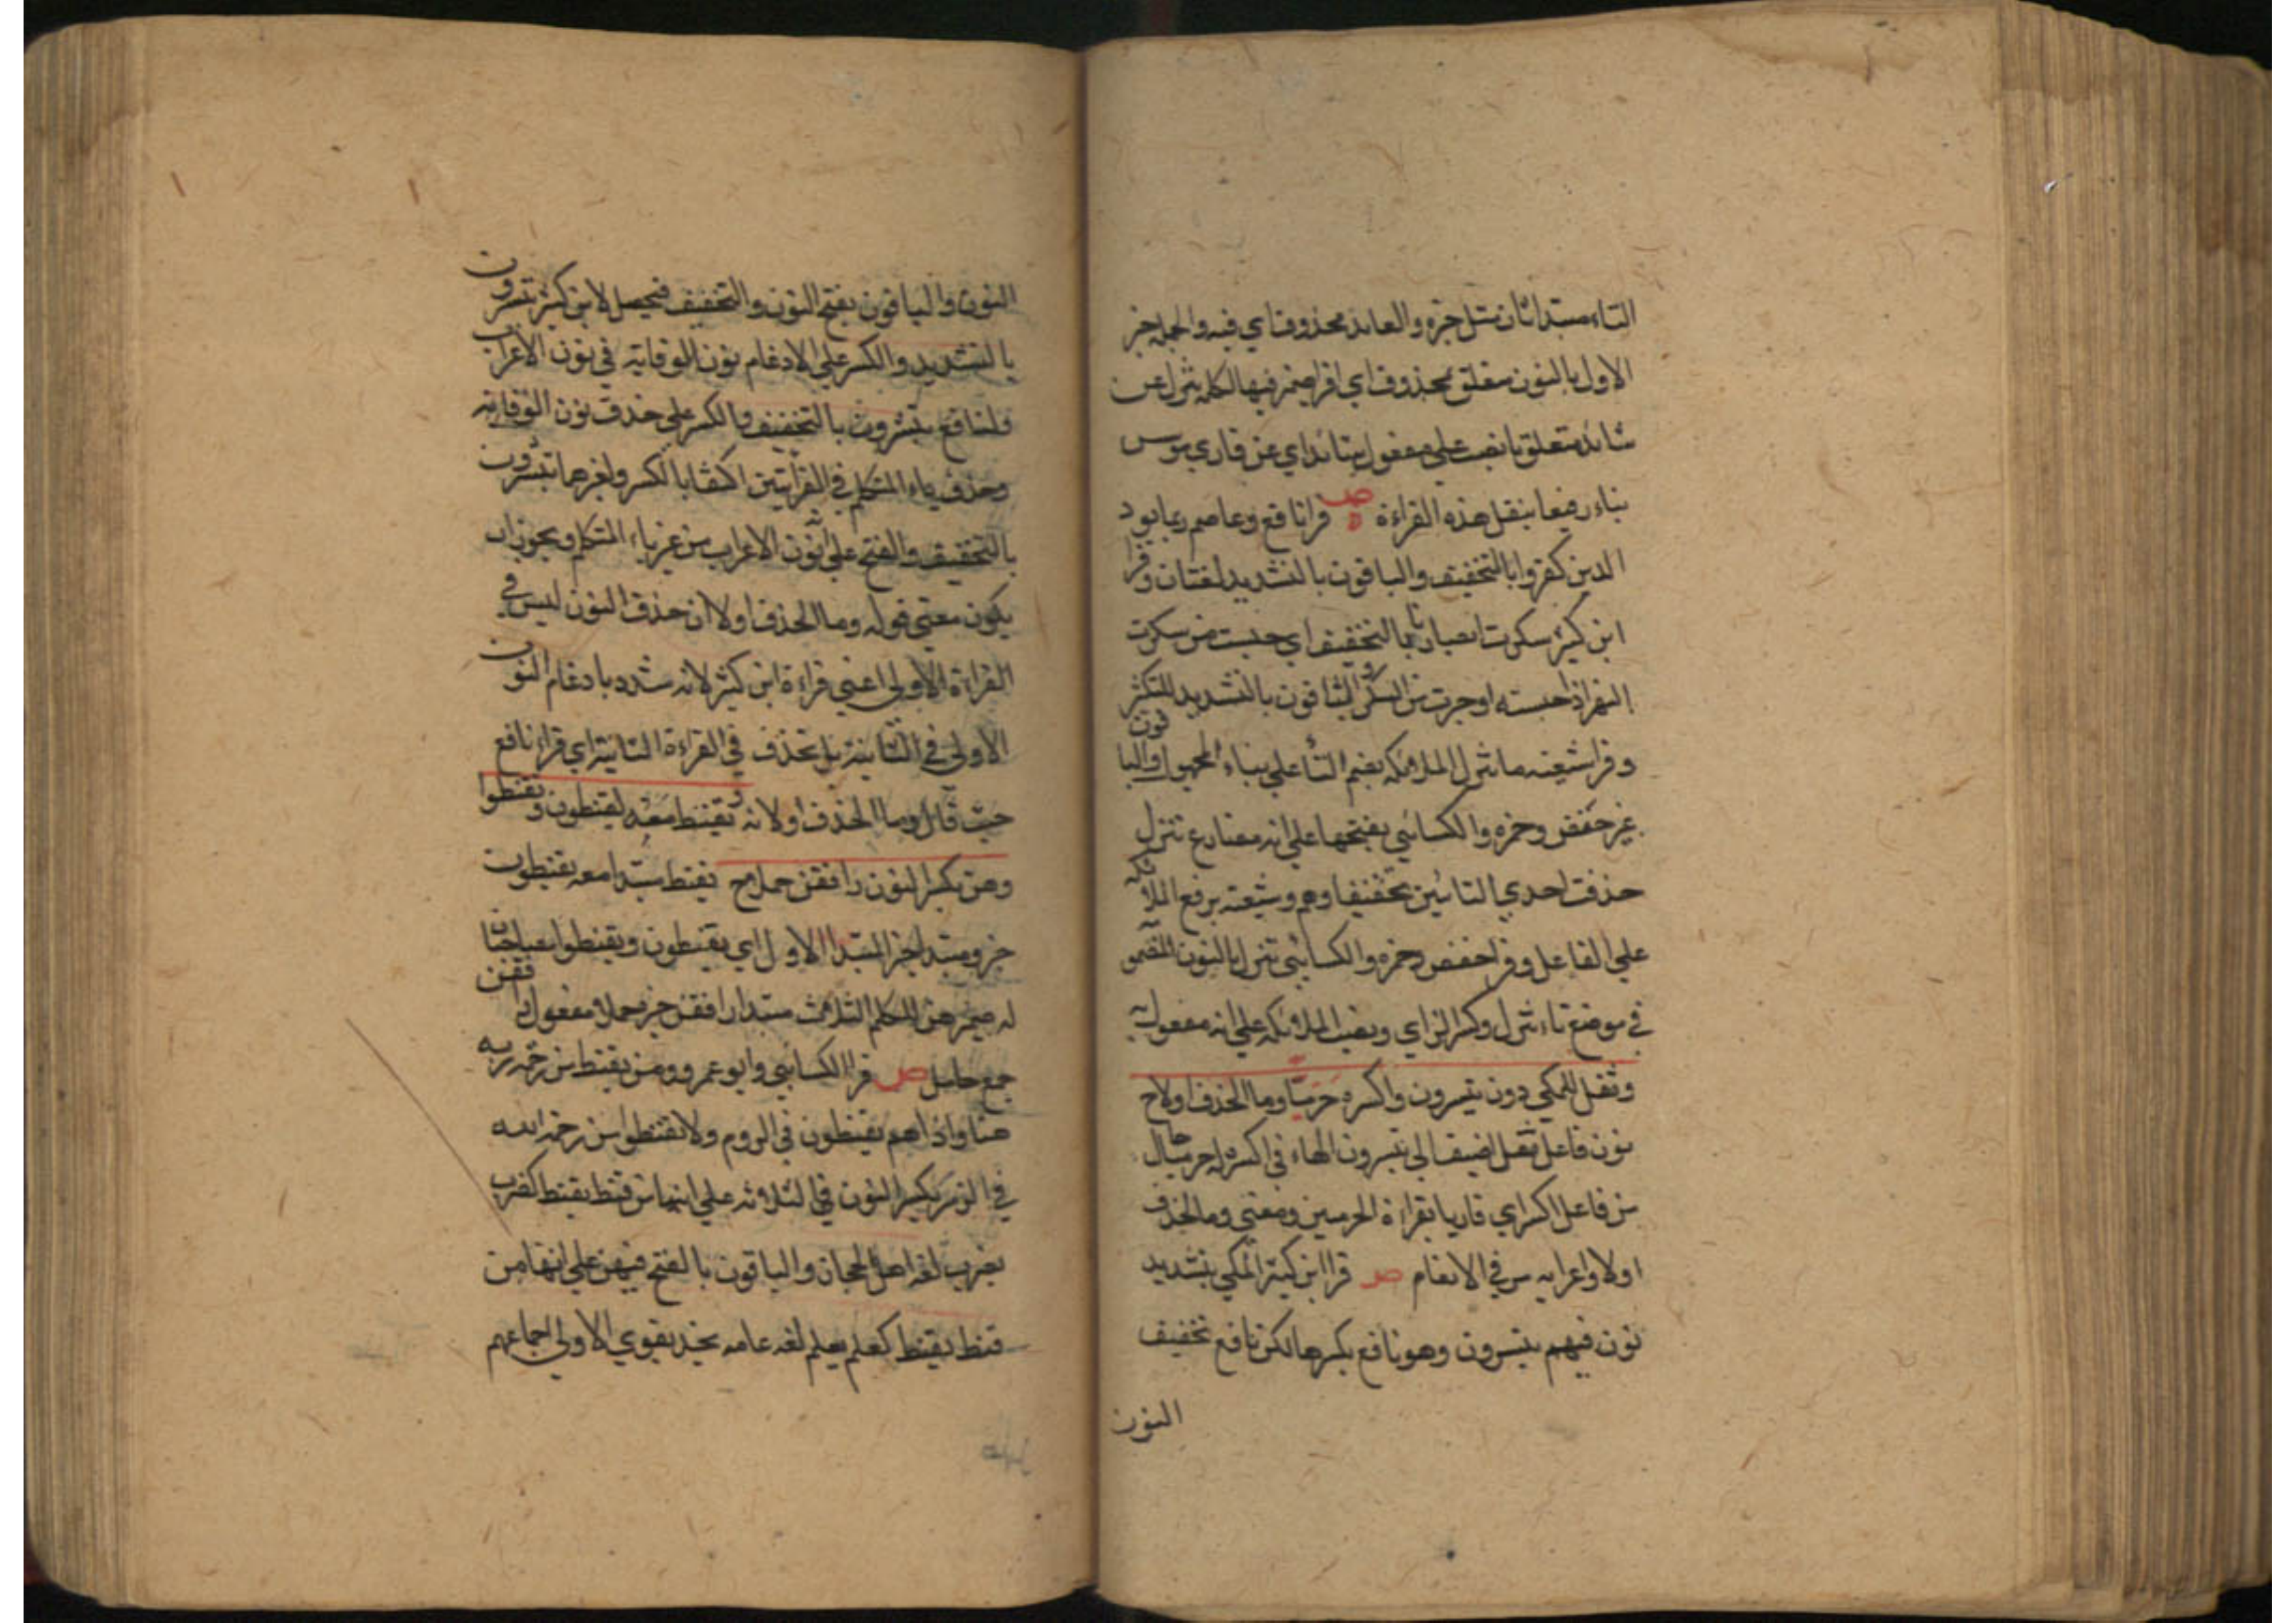 التاء مبتدا ثان مثل خبره والعايد محذوف اي فيه والجملة خبر
الاول بالنون متعلق بمحذوف اي اقرا ضمير فيها لكلمة تنزل عن
شائد متعلق بانصب على مفعول شائدا اي عن قاري موسس
بناء رفيعا بنقل هذه القراءة ص قرا نافع وعاصم ربما يود
الدين كفروا بالتخفيف والباقون بالتشديد لغتان وقرا
ابن كثير سكرت ابصارنا بالتخفيف اي حبست من سكرت
النهر اذا حبسته او جرت من السكر والباقون بالتشديد للتكثر
وقرا شعبه ما تنزل الملائكه بضم التا على بناء المجهول والباقون
غير حفص وحمزه والكسائي بفتحها على انه مضارع تنزل
حذفت احدي التائين تخفيفا وهم وشعبه برفع الملائكه
على الفاعل وقرا حفص وحمزه والكسائي ننزل بالنون المضمو
في موضع تاء تنزل وكسر الزاي ونصب الملائكه على انه مفعول به
وثقل للمكي نون تبشرون واكسره حرميا وما الحذف اولا ح
نون فاعل ثقل اضيف الى تبشرون الهاء في اكسره له حرميا حال
من فاعل اكسر اي قاريا بقراءة الحرميين ومعنى وما الحذف
اولا واعرابه مر في الانعام ص قرا ابن كثير المكي بتشديد
نون فبم تبشرون وهو ونافع بكسرها لكن نافع تخفيف
النون
النون والباقون بفتح النون والتخفيف فيحصل لابن كثير تبشرون
بالتشديد والكسر على الادغام نون الوقاية في نون الاعراب
ولنافع تبشرون بالتخفيف والكسر على حذف نون الوقاية
وحذف ياء المتكلم في القرأتين اكتفا بالكسر ولغيرهما تبشرون
بالتخفيف والفتح على نون الاعراب من غير ياء المتكلم ويجوز ان
يكون معنى قوله وما الحذف اولا ان حذف النون ليس في
القراءة الاولى اعني قراءة ابن كثير لانه شدد بادغام النون
الاولى في الثانية بل تحذف في القراءة الثانية اي قراءة نافع
حيث قال وما الحذف اولا نه ويقنط معه يقنطون وتقنطوا
وهن بكسر النون رافقن حملا ح يقنط مبتدا معه يقنطون
خبر ومبتدا خبر المبتدا الاول اي يقنطون وتقنطوا مصاحبان
له ضمير هن للكلم الثلاث مبتدا رافقن خبر حملا مفعول رافقن
جمع حامل ص قرا الكسائي وابو عمرو ومن يقنط من رحمة ربه
هنا واذا هم يقنطون في الروم ولا تقنطوا من رحمة الله
في الزمر بكسر النون في الثلاثه على انها من قنط يقنط كضرب
يضرب لغه اهل الحجاز والباقون بالفتح فيهن على انها من
قنط يقنط كعلم يعلم لغه عامه نجد يقوي الاولى اجماعهم